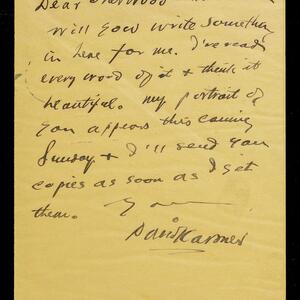 Dear Sherwood
will you write something
in here for me. I've read
every word of it & think it
beautiful. my portrait of
you appears this coming
Sunday & I'll send you
copies as soon as I get
them.
David Karsner